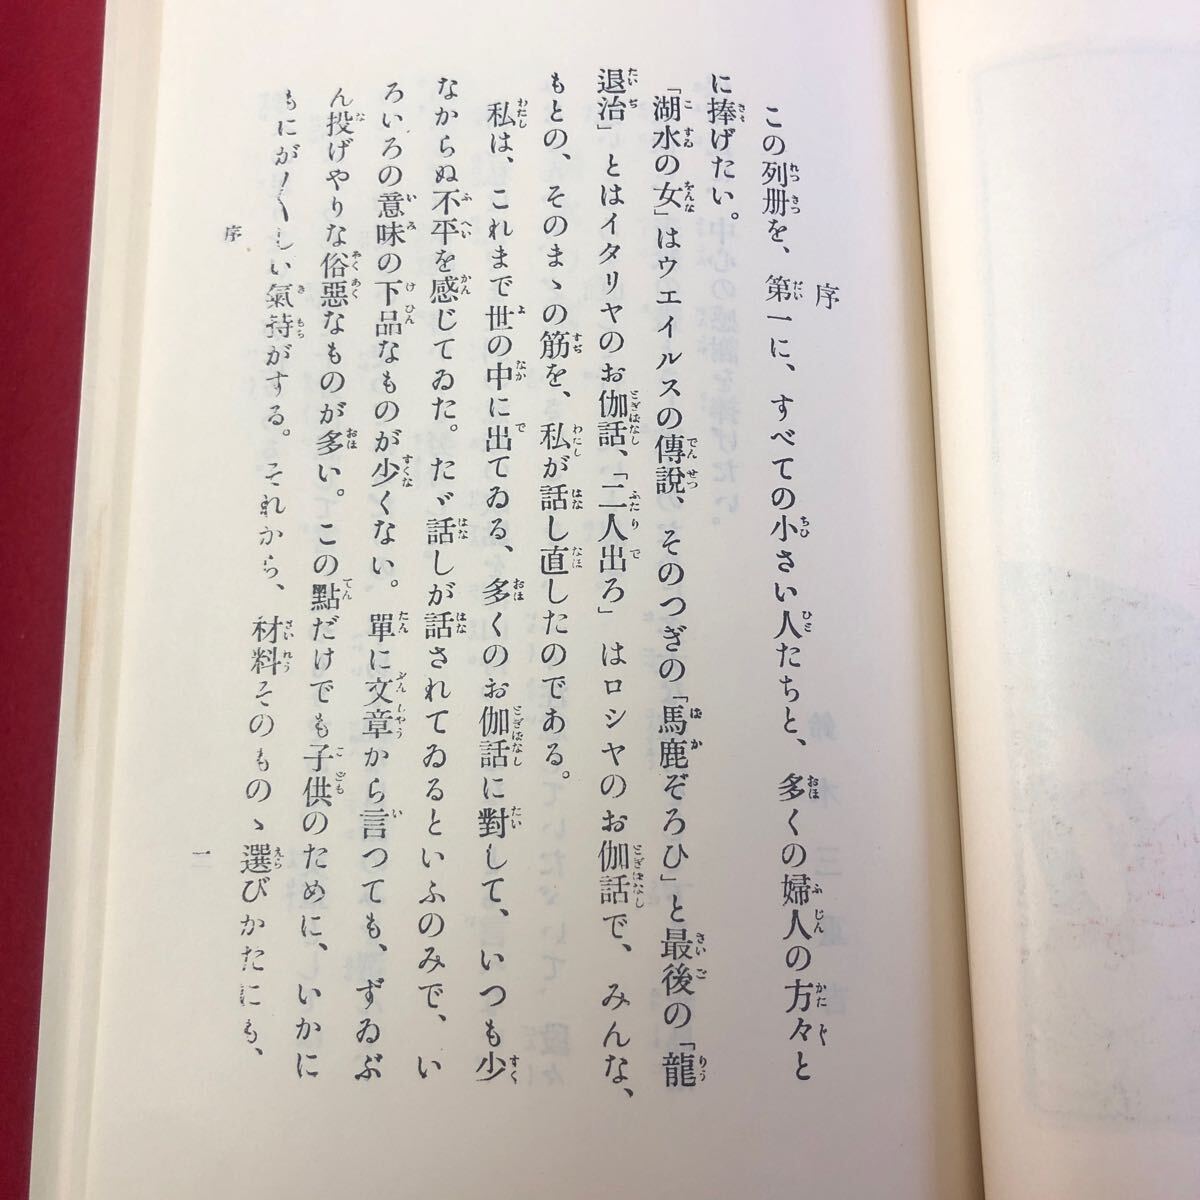 序
この列册を、第一に、すべての小さい人たちと、多くの婦人の方々と
に捧げたい。
「湖水の女」はウエイルスの傳説、そのつぎの「馬鹿ぞろひ」と最後の「龍
退治」とはイタリヤのお伽話、「二人出ろ」はロシヤのお伽話で、みんな、
もとの、そのまゝの筋を、私が話し直したのである。
私は、これまで世の中に出てゐる、多くのお伽話に對して、いつも少
なからぬ不平を感じてゐた。たゞ話しが話されてゐるといふのみで、い
ろいろの意味の下品なものが少くない。單に文章から言つても、ずゐぶ
ん投げやりな俗惡なものが多い。この點だけでも子供のために、いかに
もにが〱しい氣持がする。それから、材料そのものゝ選びかたにも、
序
一